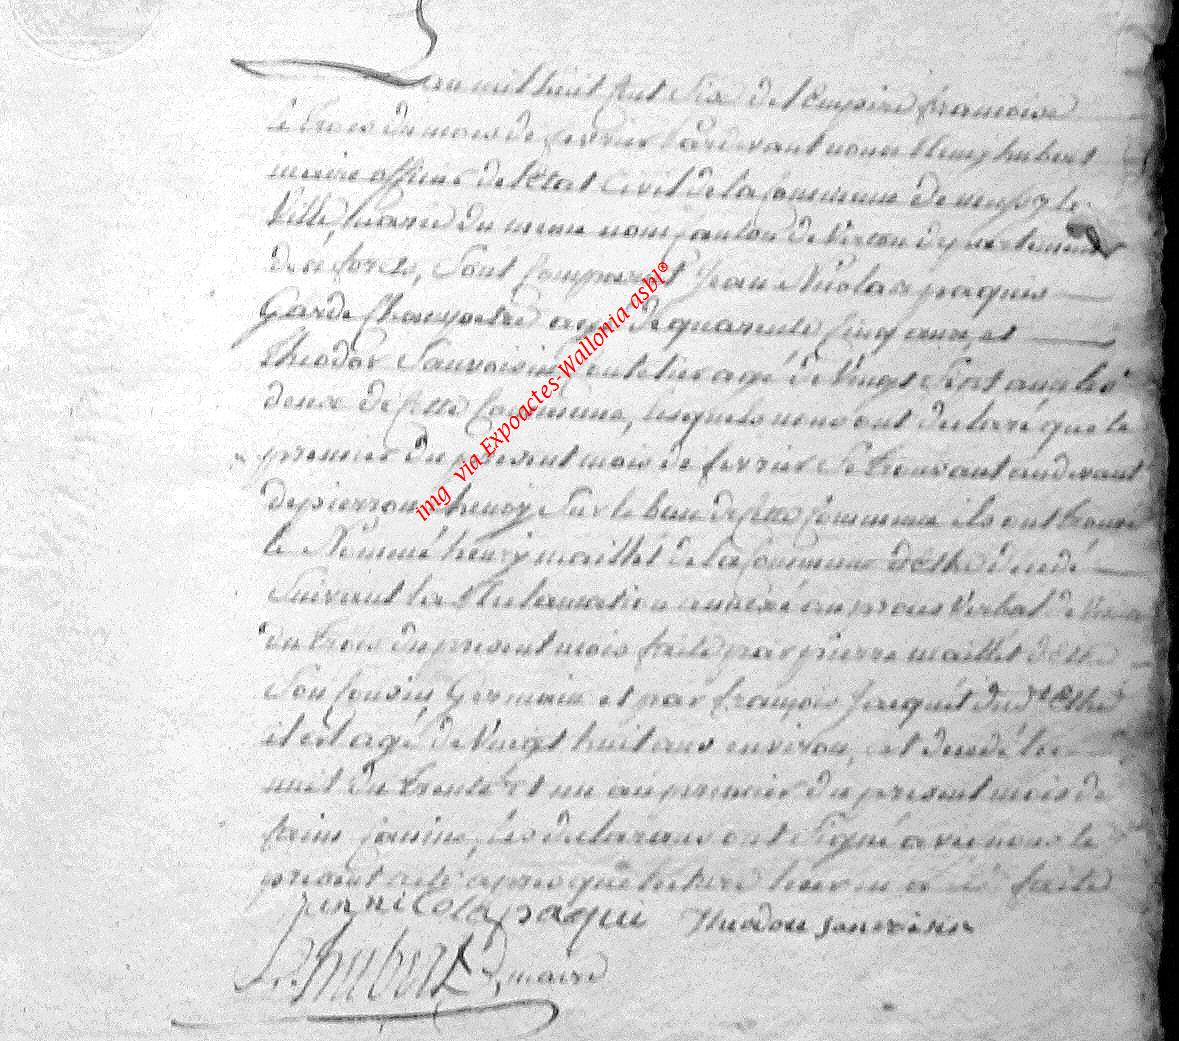 L'an mil huit sent six de l'empire françoise
le trois du mois de fevrier pardevant nous hubert
maire officier de l'Etat Civil de la Commune de le
Ville, mairie du meme nom canton de Virton departement
des forets, sont comparut Jean Nicolas paquis
Garde Champetre agé de quarente cinq ans, et
theodor Sauvoisin agé de Vingt Sept ans
dence de sette Commune, lesquels nous ont declaré que le
premier du present mois de fevrier se trouvant audevant
de pierron henry sur le ban de sette commune ils ont trouvé
le Nommé henry maillet de la Commune d'Ethe décédé
suivant la declamation annexé au proces Verbal de
du trois du present mois faite par pierre maillet d'Ethe
son cousin Germain et par françois Jacquet dud. Ethe
il est agé de Vingt huit ans environ, est décédé la
nuit du trente et un au premier du present mois de
les declarans ont signé avec nous le
present acte apres que lecture leur en a été faite
Jean nicola paqui theodore sauvoisin
hubert maire
img via Expoactes-Wallonia asbl®